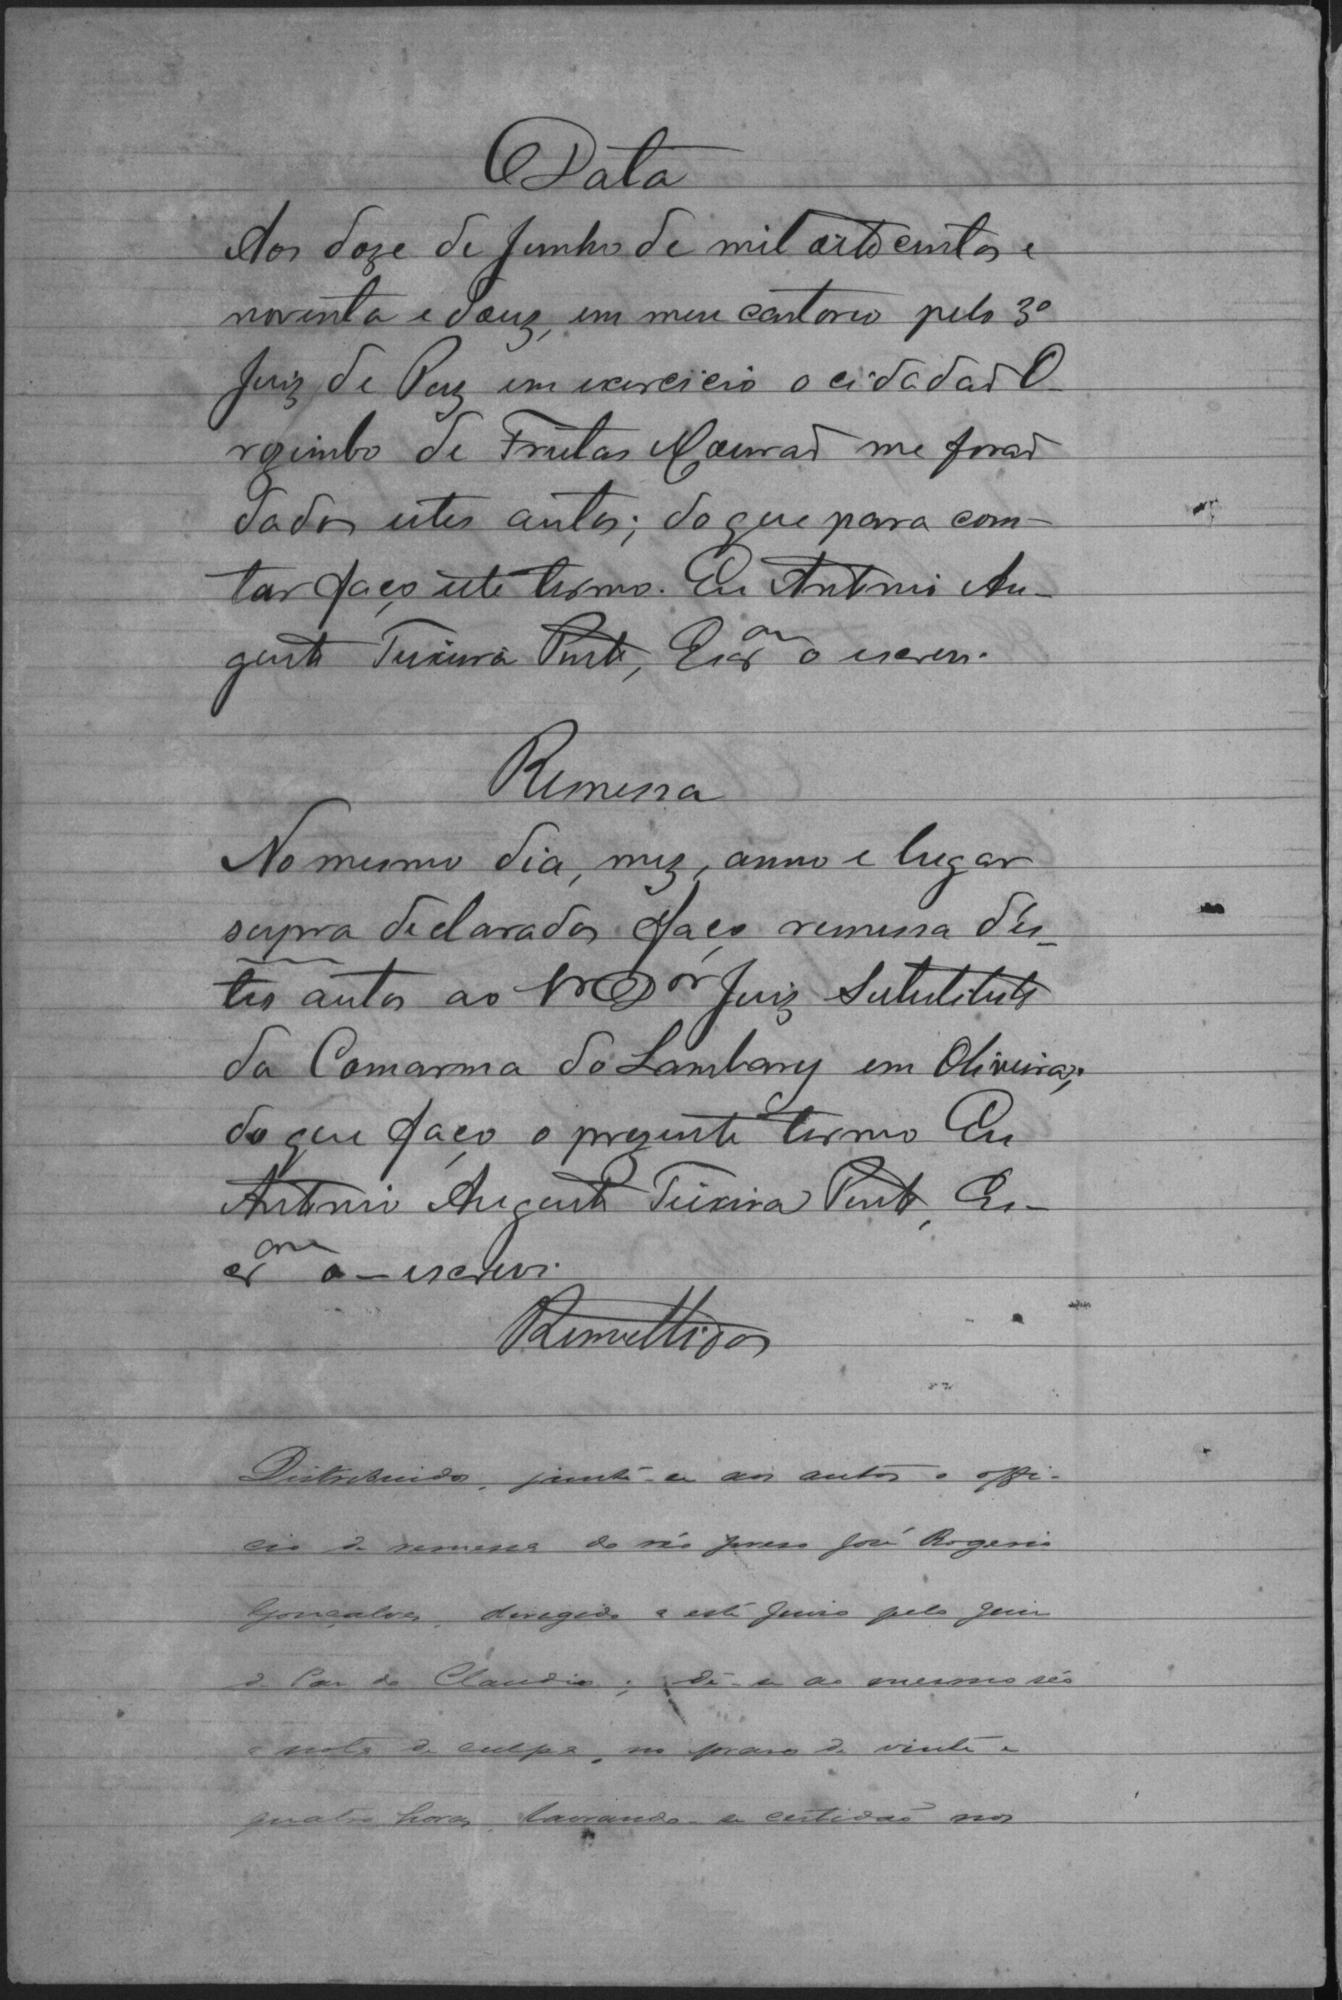 Data
Aos doze de Junho de mil oito centos e
noventa e douz, em meu cartorio pelo 3º
Juiz de Paz em exercicio o cidadaõ O-
rozimbo de Freitas Mouraõ me foraõ
dados estes autos; do que para cons-
tar faço este termo. Eu Antonio Au-
gusto Teixeira Pinto, Escram o escrevi.
Remessa
No mesmo dia, mez, anno e lugar
supra declarados faço remessa d'es-
tes autos ao Dor Juiz Substituto
da Comarca do Lambary em Oliveira;
do que faço o prezente termo Eu
Antonio Augusto Teixeira Pinto, Es-
cram o - escrevi.
Remettidos
Distribuido, junte-se aos autos o offi-
cio de remessa do réo preso José Rogerio
Gonçalves, deregido a este Juizo pelo Juiz
de Paz do Claudio; dê-se ao mesmo réo
a nota de culpa, no praso de vinte e
quatro horas, lavrando-se certidaõ nos